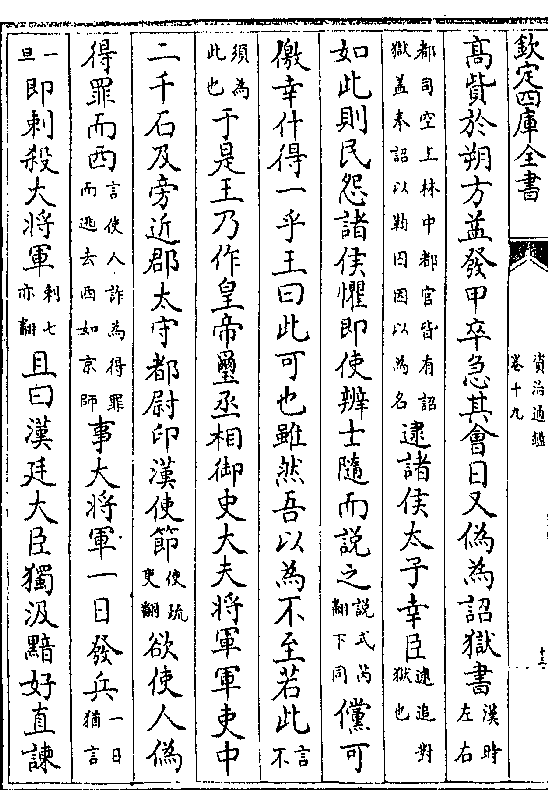 欽定四庫全書
資治通鑑
卷十九
高貲於朔方益發甲卒急其會日又偽為詔獄書漢時左右
都司空上林中都官皆有詔獄盖奉詔以鞫囚因以為名逮諸侯太子幸臣逮追對獄也
如此則民怨諸侯懼即使辨士隨而說之說式芮翻下同儻可
儌幸什得一乎王曰此可也雖然吾以為不至若此言不
須為此也于是王乃作皇帝璽丞相御史大夫將軍軍吏中
二千石及旁近郡太守都尉印漢使節使疏吏翻欲使人偽
得罪而西言使人詐為得罪而逃去西如京師事大將軍一日發兵一日猶言
一旦即刺殺大將軍刺七亦翻且曰漢廷大臣獨汲黯好直諫